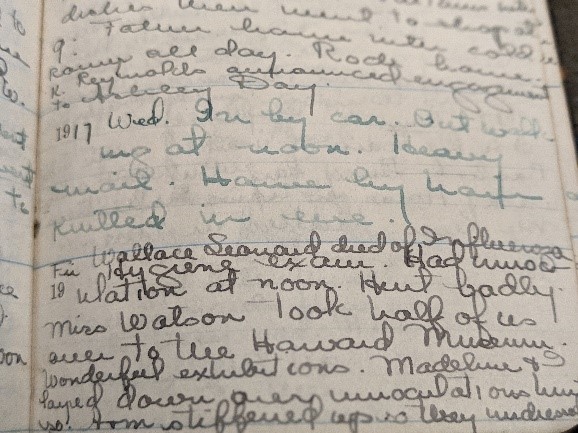 dishes then went to shop at
9. Father home with cold
Rainy all day. Rode home.
K. Reynolds announced engagement
to Day.
1917 Wed. In by car. Out walk-
ing at noon. Heavy
mail. Home by
Knitted in eve.
Wallace Seward died of Influenza
Fri Hygiene exam. Had innoc-
19 ulation at noon. Hurt badly.
Miss Watson took half of us
over to the Harvard Museum.
Wonderful exhibitions. Madeline & I
layed down over innoculations
us. Arm stiffened up so